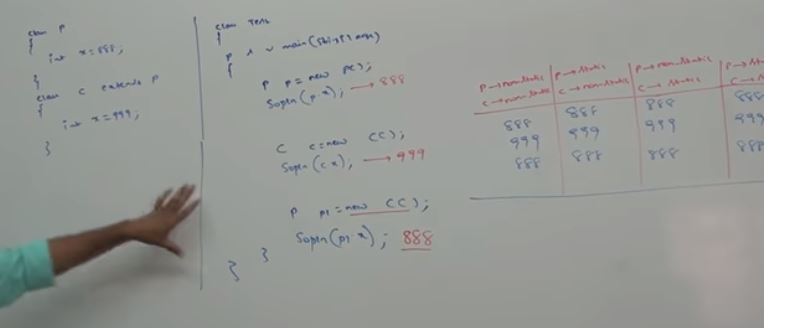 class P
{
int x=888;
}
class C extends P
{
int x=999;
}
class Test
{
P s v main(String[] args)
{
P p=new P();
Sopln(p.x); → 888
C c=new C();
Sopln(c.x); → 999
P p1=new C();
Sopln(p1.x); 888
}
}
P→non-static P→static P→non-static P→
C→non-static C→non-static C→static C→
888 888 888 888
999 999 999 999
888 888 888 888